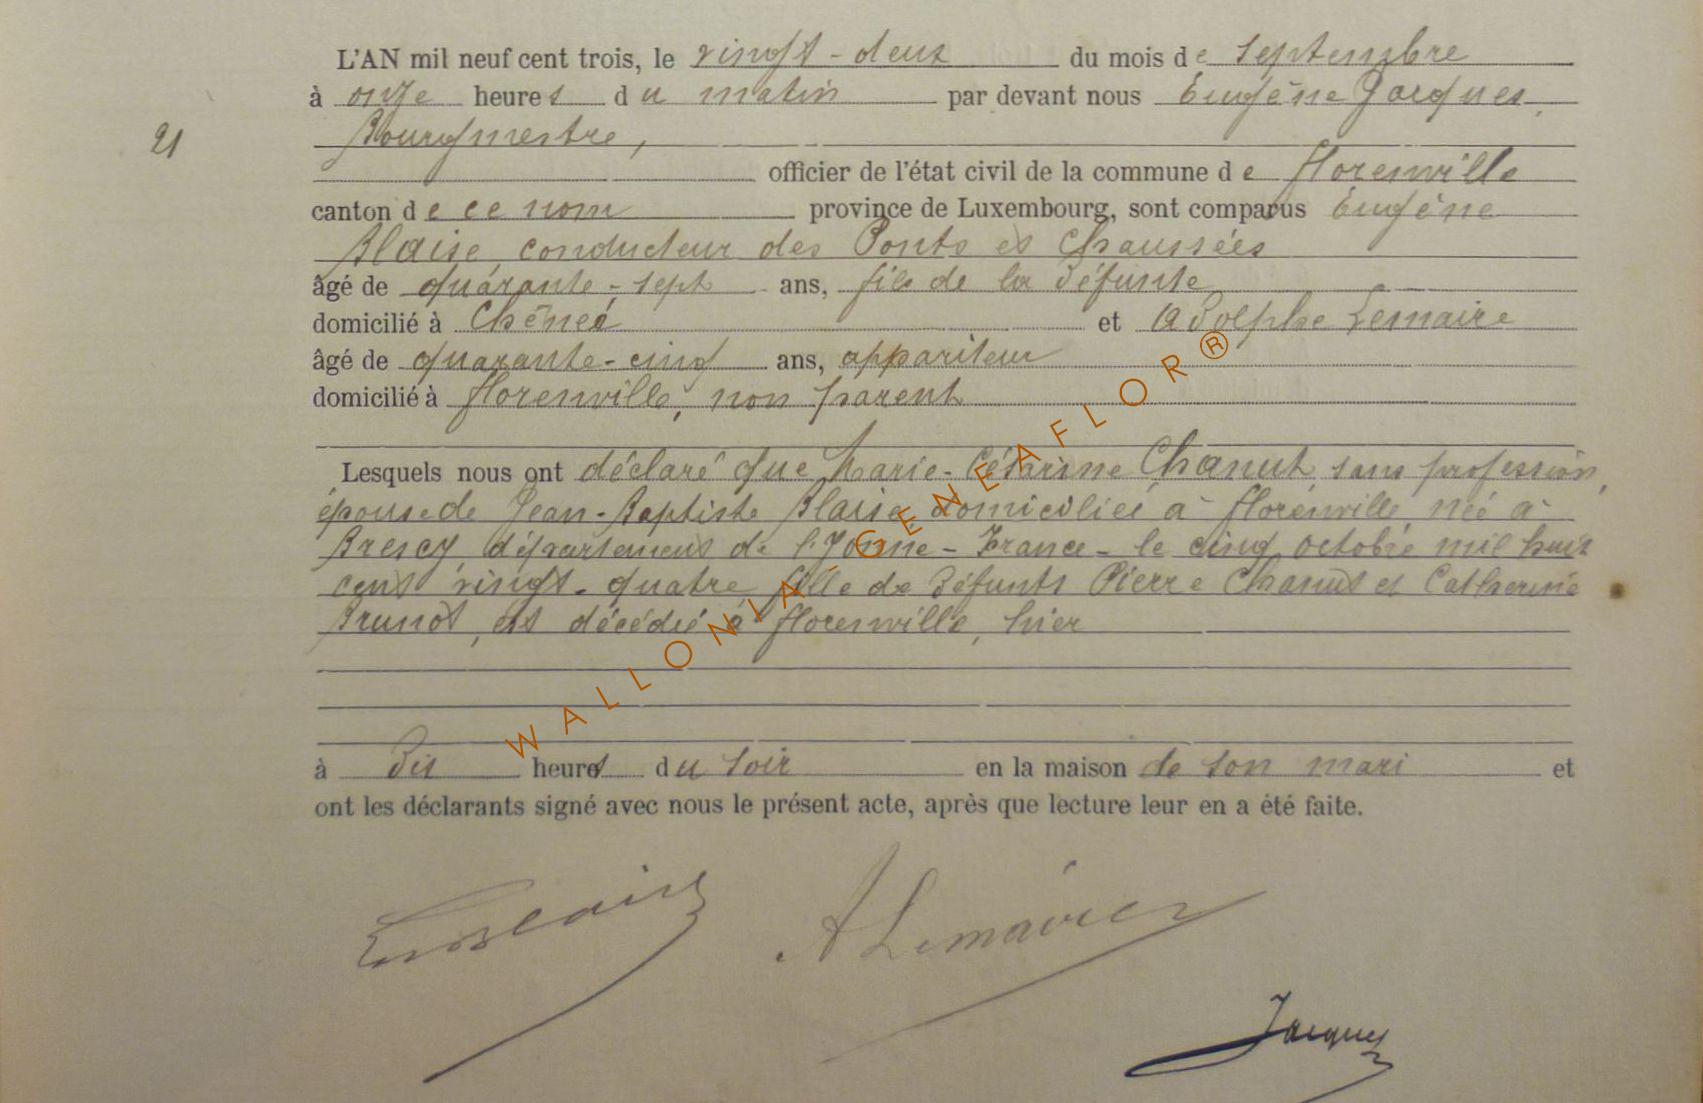 L'AN mil neuf cent trois, le vingt-deux du mois de septembre
à onze heures du matin par devant nous Eugène Jacques,
Bourgmestre,
21
officier de l'état civil de la commune de Florenville
canton de ce nom province de Luxembourg, sont comparus Eugène
Blaise, conducteur des Ponts et Chaussées
âgé de quarante-sept ans, fils de la défunte
domicilié à Chênée et Adolphe Lemaire
âgé de quarante-cinq ans, appariteur
domicilié à Florenville, non parent
Lesquels nous ont déclaré que Marie-Césarine Chanut, sans profession,
épouse de Jean-Baptiste Blaise domiciliée à Florenville née à
département de l'Yonne - France - le cinq octobre mil huit
cent vingt-quatre, fille de défunts Pierre Chanut et Catherine
Brunot, est décédée à Florenville, hier
à dix heures du soir en la maison de son mari et
ont les déclarants signé avec nous le présent acte, après que lecture leur en a été faite.
ALemaire
Jacques
WALLONIA-GENEAFLOR®